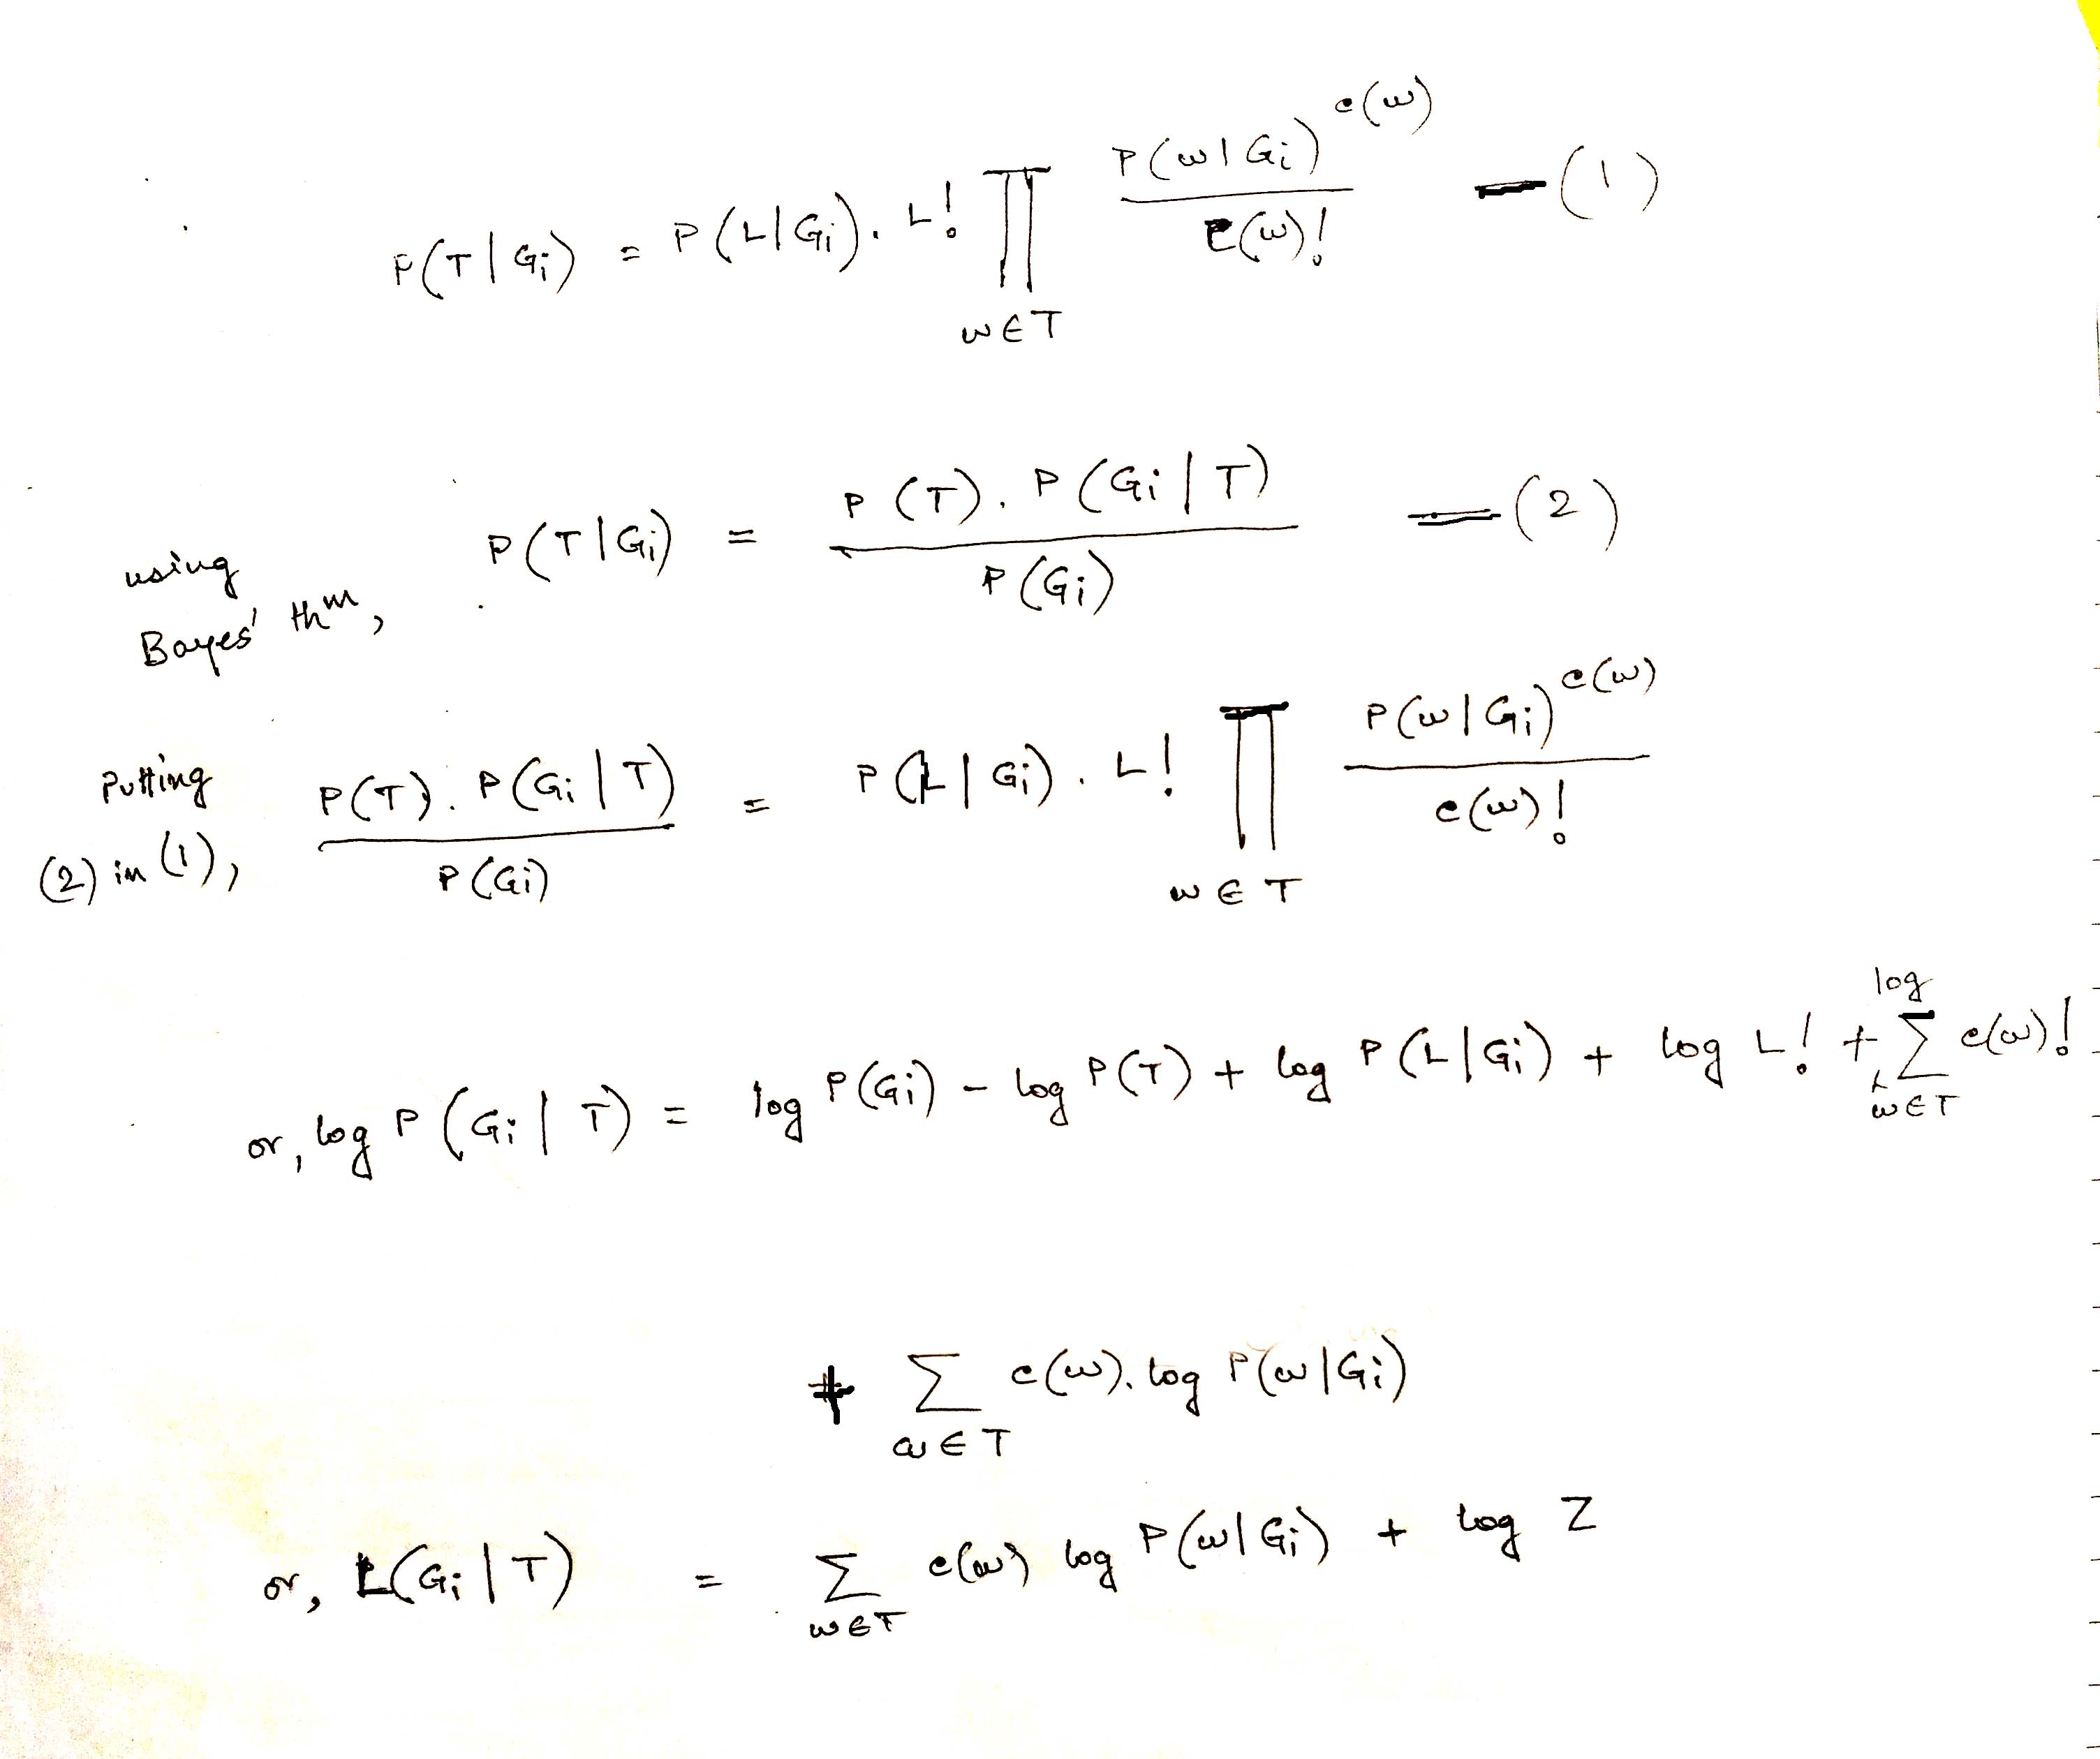 P(T|Gi) = P(L|Gi). L! ∏_{w∈T} P(w|Gi)^{c(w)} / c(w)! — (1)
using Bayes' thm, P(T|Gi) = P(T). P(Gi|T) / P(Gi) — (2)
Putting (2) in (1), P(T). P(Gi|T) / P(Gi) = P(L|Gi). L! ∏_{w∈T} P(w|Gi)^{c(w)} / c(w)!
or, log P(Gi|T) = log P(Gi) - log P(T) + log P(L|Gi) + log L! + ∑_{w∈T} log c(w)!
+ ∑_{w∈T} c(w). log P(w|Gi)
or, L(Gi|T) = ∑_{w∈T} c(w) log P(w|Gi) + log Z